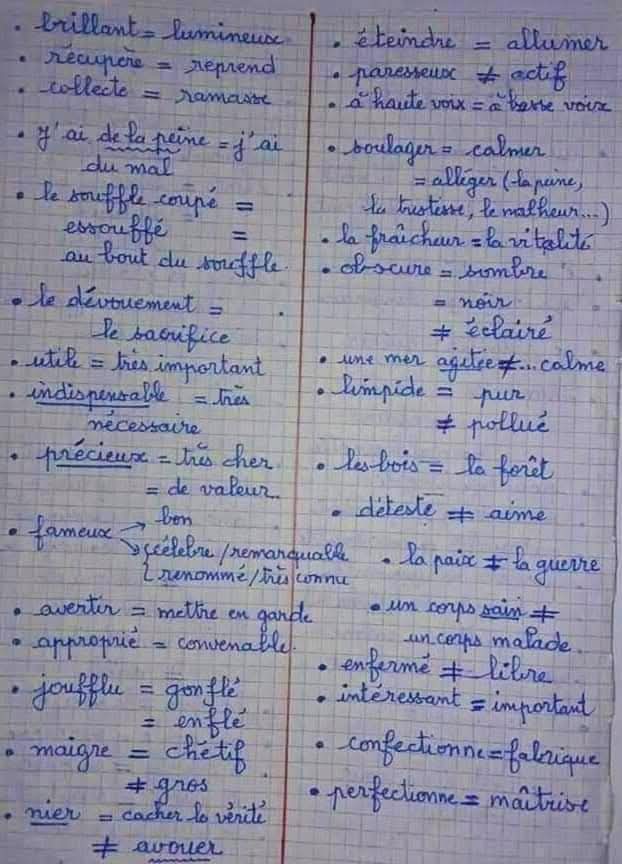 . brillant = lumineux
. récupère = reprend
. collecte = ramasse
. J'ai de la peine = j'ai
du mal
. le souffle coupé =
essoufflé =
au bout du souffle.
. le dévouement =
le sacrifice
. utile = très important
. indispensable = très
nécessaire
. précieux = très cher
= de valeur.
. fameux → bon
→ {célebre / remarquable
{renommé / très connu
. avertir = mettre en garde
. approprié = convenable.
. joufflu = gonflé
= enflé
. maigre = chétif
≠ gros
. nier = cacher la vérité
≠ avouer
. éteindre = allumer
. paresseux ≠ actif
. à haute voix = à basse voix
. soulager = calmer
= alléger (la peine,
la tristesse, le malheur...)
. la fraîcheur = la vitalité
. obscure = sombre
= noir
≠ éclairé
. une mer agitée ≠ ... calme
. limpide = pur
≠ pollué
. les bois = la forêt
. déteste ≠ aime
. la paix ≠ la guerre
. un corps sain ≠
un corps malade.
. enfermé ≠ libre
. intéressant = important
. confectionne = fabrique
. perfectionne = maîtrise